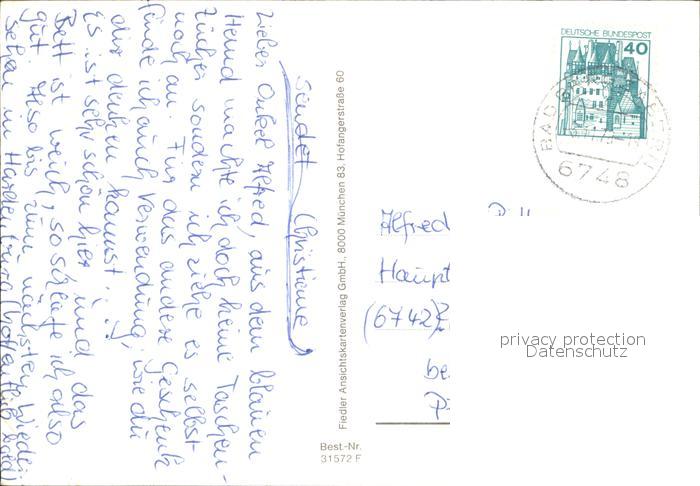 Lieber Onkel Alfred, aus dem blauen
Hemd machte ich doch keine Taschen-
tücher sondern ich ziehe es selbst
noch an. Für das andere Geschenk
finde ich auch Verwendung, wie du
dir denken kannst.
Es ist sehr schön hier und das
Bett ist weich, so schlafe ich also
gut. Also bis zum nächsten Wieder-
sehen in Hardenburg (hoffentlich bald)
sendet Christiane
Fiedler Ansichtskartenverlag GmbH., 8000 München 83, Hofangerstraße 60
Best.-Nr.
31572 F
DEUTSCHE BUNDESPOST
40
BAD
6748
Alfred
Haupt
(6742)
be
privacy protection
Datenschutz